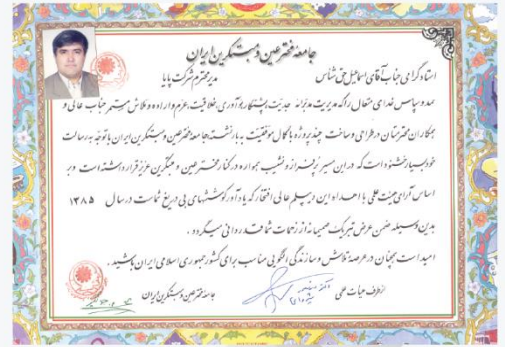 جامعه مخترعین و مبتکرین ایران
استاد گرامی جناب آقای اسماعیل حق شناس
مدیر محترم شرکت پایا
حمد و سپاس خدای متعال را که مدیریت مدبرانه جدیت، پشتکار، نوآوری، خلاقیت، عزم و اراده و تلاش مستمر جناب عالی و
همکاران محترمتان در طراحی و ساخت چند پروژه با کمال موفقیت به بار نشسته جامعه مخترعین و مبتکرین ایران با توجه به رسالت
خود بسیار خشنود است که در این مسیر پر فراز و نشیب همواره در کنار مخترعین و مبتکرین عزیز قرار داشته است و بر
اساس آرای هیئت علمی با اهداء این دیپلم عالی افتخار که یادآور کوششهای بی دریغ شماست در سال ۱۳۸۵
بدین وسیله ضمن عرض تبریک صمیمانه از زحمات شما قدردانی میگردد .
امید است همچنان در عرصه تلاش و سازندگی الگویی مناسب برای کشور جمهوری اسلامی ایران باشید .
از طرف هیات علمی
جامعه مخترعین و مبتکرین ایران